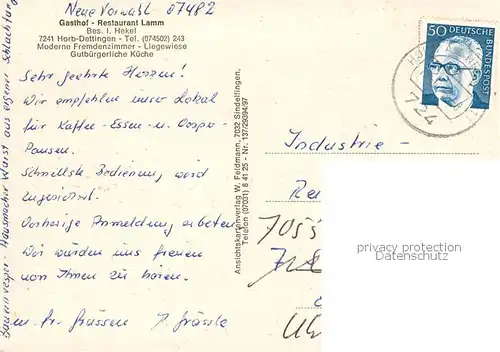 Neue Vorwahl 07482
Gasthof - Restaurant Lamm
Bes. I. Hekel
7241 Horb-Dettingen - Tel. (074502) 243
Moderne Fremdenzimmer - Liegewiese
Gutbürgerliche Küche
Sehr geehrte Herren!
Wir empfehlen unser Lokal
für Kaffee-Essen- u. Vesper-
Pausen.
Schnellste Bedienung wird
zugesichert.
Vorherige Anmeldung erbeten
Wir würden uns freuen
von Ihnen zu hören.
m. fr. Grüssen
Bauernvesper - Hausmacher Wurst aus eigener Schlachtung
Ansichtskartenverlag W. Feldmann, 7032 Sindelfingen,
Telefon (07031) 8 41 25 - Nr. 137/29394/97
50 DEUTSCHE
BUNDESPOST
724
Industrie-
7055
privacy protection
Datenschutz